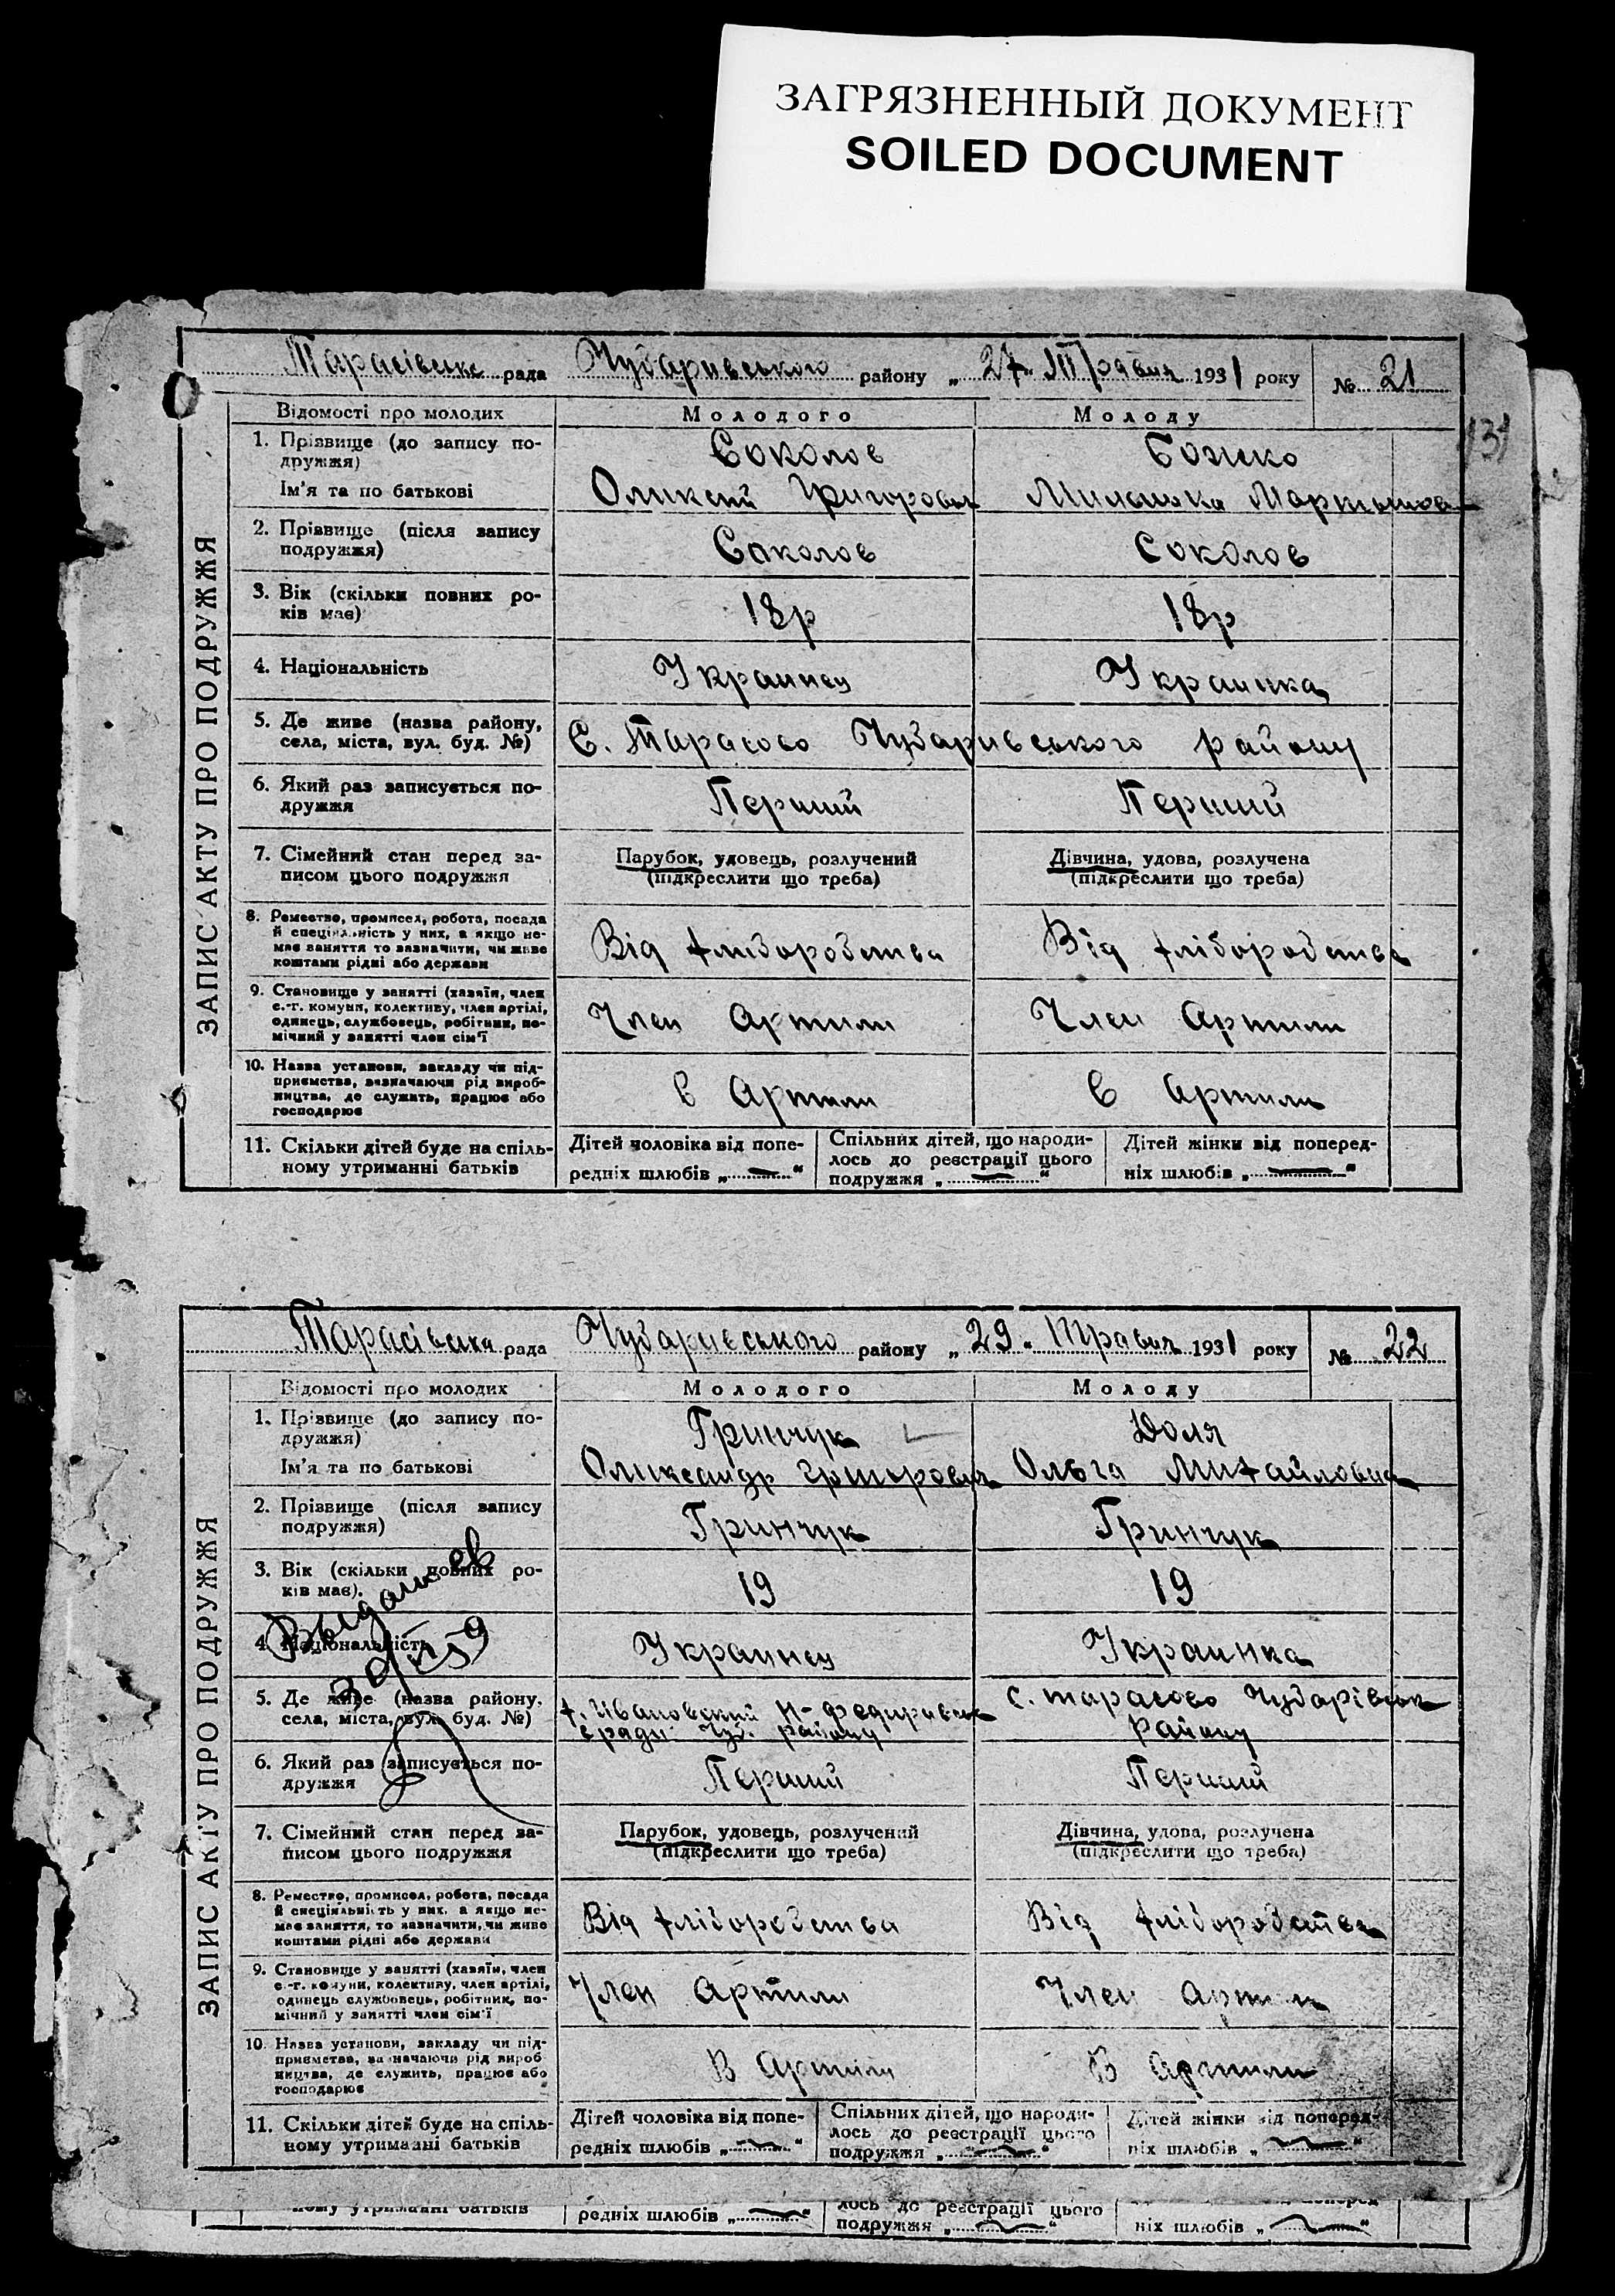 ЗАГРЯЗНЕННЫЙ ДОКУМЕНТ
SOILED DOCUMENT
ЗАПИС АКТУ ПРО ПОДРУЖЖЯ
Тарасівська рада Чубарівського району „27“ Травня 1931 року № 21
131
Відомості про молодих Молодого Молоду
1. Прізвище (до запису по-
дружжя) Соколов Божко
Ім'я та по батькові Оликсій Григоров
2. Прізвище (після запису
подружжя) Соколов Соколов
3. Вік (скільки повних ро-
ків має) 18р 18р
4. Національність Украинец Украинка
5. Де живе (назва району,
села, міста, вул. буд. №) С. Тарасово Чубаривського району
6. Який раз записується по-
дружжя Перший Перший
7. Сімейний стан перед за-
писом цього подружжя
Парубок, удовець, розлучений
(підкреслити що треба)
Дівчина, удова, розлучена
(підкреслити що треба)
8. Ремество, промисел, робота, посада
й спеціяльність у них, а якщо не-
має заняття то зазначити, чи живе
коштами рідні або держави
Від хлиборобства Від хліборобства
9. Становище у занятті (хазяїн, член
с.-г. комуни, колективу, член артілі,
одинець, службовець, робітник, по-
мічний у занятті член сім'ї
Член Артили Член Артили
10. Назва установи, закладу чи під-
приємства, визначаючи рід вироб-
ництва, де служить, працює або
господарює
в Артили в Артили
11. Скільки дітей буде на спіль-
ному утриманні батьків
Дітей чоловіка від попе-
редніх шлюбів „—“
Спільних дітей, що народи-
лось до реєстрації цього
подружжя „—“
Дітей жінки від поперед-
ніх шлюбів „—“
ЗАПИС АКТУ ПРО ПОДРУЖЖЯ
Тарасівська рада Чубаривського району „29“ Травня 1931 року № 22
Відомості про молодих Молодого Молоду
1. Прізвище (до запису по-
дружжя) Гринчук Доля
Ім'я та по батькові Оликсандр Григорович Ольга Михайловна
2. Прізвище (після запису
подружжя) Гринчук Гринчук
3. Вік (скільки повних ро-
ків має). 19 19
4. Національність Украинец Украинка
5. Де живе (назва району,
села, міста, вул. буд. №)
х. Ивановский Н-Федоривськ
с ради Чуб. району
с. Тарасово Чубарівськ
району
6. Який раз записується по-
дружжя Перший Перший
7. Сімейний стан перед за-
писом цього подружжя
Парубок, удовець, розлучений
(підкреслити що треба)
Дівчина, удова, розлучена
(підкреслити що треба)
8. Ремество, промисел, робота, посада
й спеціяльність у них, а якщо не-
має заняття, то зазначити, чи живе
коштами рідні або держави
Від хліборобства Від хліборобства
9. Становище у занятті (хазяїн, член
с.-г. комуни, колективу, член артілі,
одинець службовець, робітник, по-
мічний у занятті член сім'ї
Член Артили Член Артили
10. Назва установи, закладу чи під-
приємства, визначаючи рід вироб
ництва, де служить, працює або
господарює
В Артили В Артили
11. Скільки дітей буде на спіль-
ному утриманні батьків
Дітей чоловіка від попе-
редніх шлюбів „—“
Спільних дітей, що народи-
лось до реєстрації цього
подружжя „—“
Дітей жінки від поперед-
ніх шлюбів „—“
ному утриманні батьків
редніх шлюбів „—“
лось до реєстрації цього
подружжя „—“
ніх шлюбів „—“